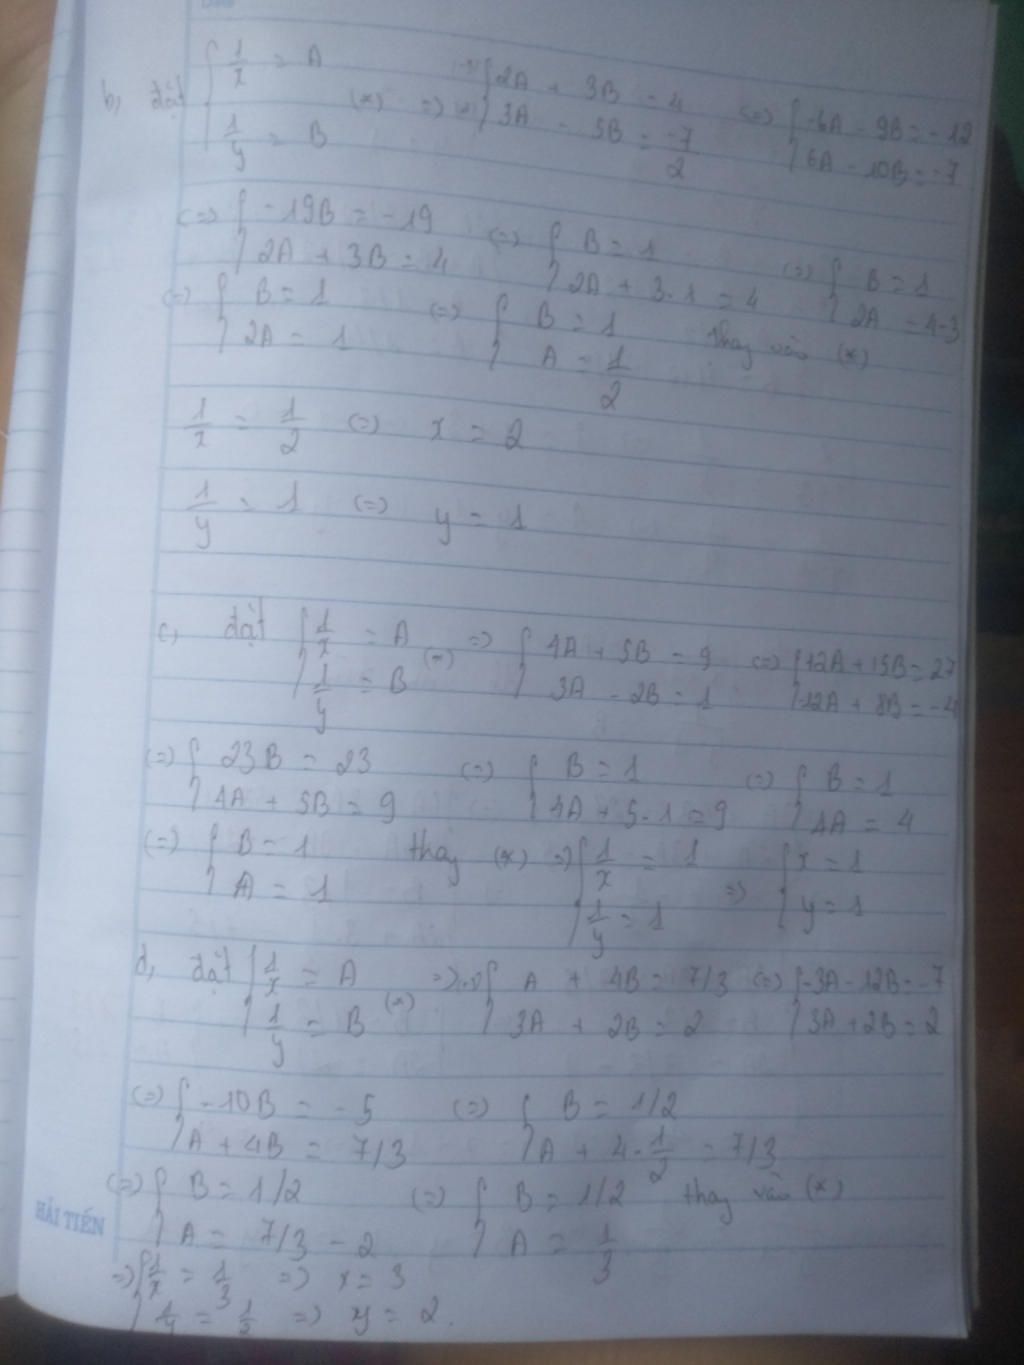 b, đặt { 1/x = A ; 1/y = B (*) => { 2A + 3B = 4 ; 3A - 5B = -7/2 <=> { -6A - 9B = -12 ; 6A - 10B = -7
<=> { -19B = -19 ; 2A + 3B = 4 <=> { B = 1 ; 2A + 3.1 = 4 <=> { B = 1 ; 2A = 4-3
<=> { B = 1 ; 2A = 1 <=> { B = 1 ; A = 1/2 thay vào (*)
1/x = 1/2 <=> x = 2
1/y = 1 <=> y = 1
c, đặt { 1/x = A ; 1/y = B (*) => { 4A + 5B = 9 ; 3A - 2B = 1 <=> { 12A + 15B = 27 ; -12A + 8B = -4
<=> { 23B = 23 ; 4A + 5B = 9 <=> { B = 1 ; 4A + 5.1 = 9 <=> { B = 1 ; 4A = 4
<=> { B = 1 ; A = 1 thay (*) => { 1/x = 1 ; 1/y = 1 => { x = 1 ; y = 1
d, đặt { 1/x = A ; 1/y = B (*) => { A + 4B = 7/3 ; 3A + 2B = 2 <=> { -3A - 12B = -7 ; 3A + 2B = 2
<=> { -10B = -5 ; A + 4B = 7/3 <=> { B = 1/2 ; A + 4.1/2 = 7/3
<=> { B = 1/2 ; A = 7/3 - 2 <=> { B = 1/2 ; A = 1/3 thay vào (*)
=> { 1/x = 1/3 => x = 3
1/y = 1/2 => y = 2.
HẢI TIẾN